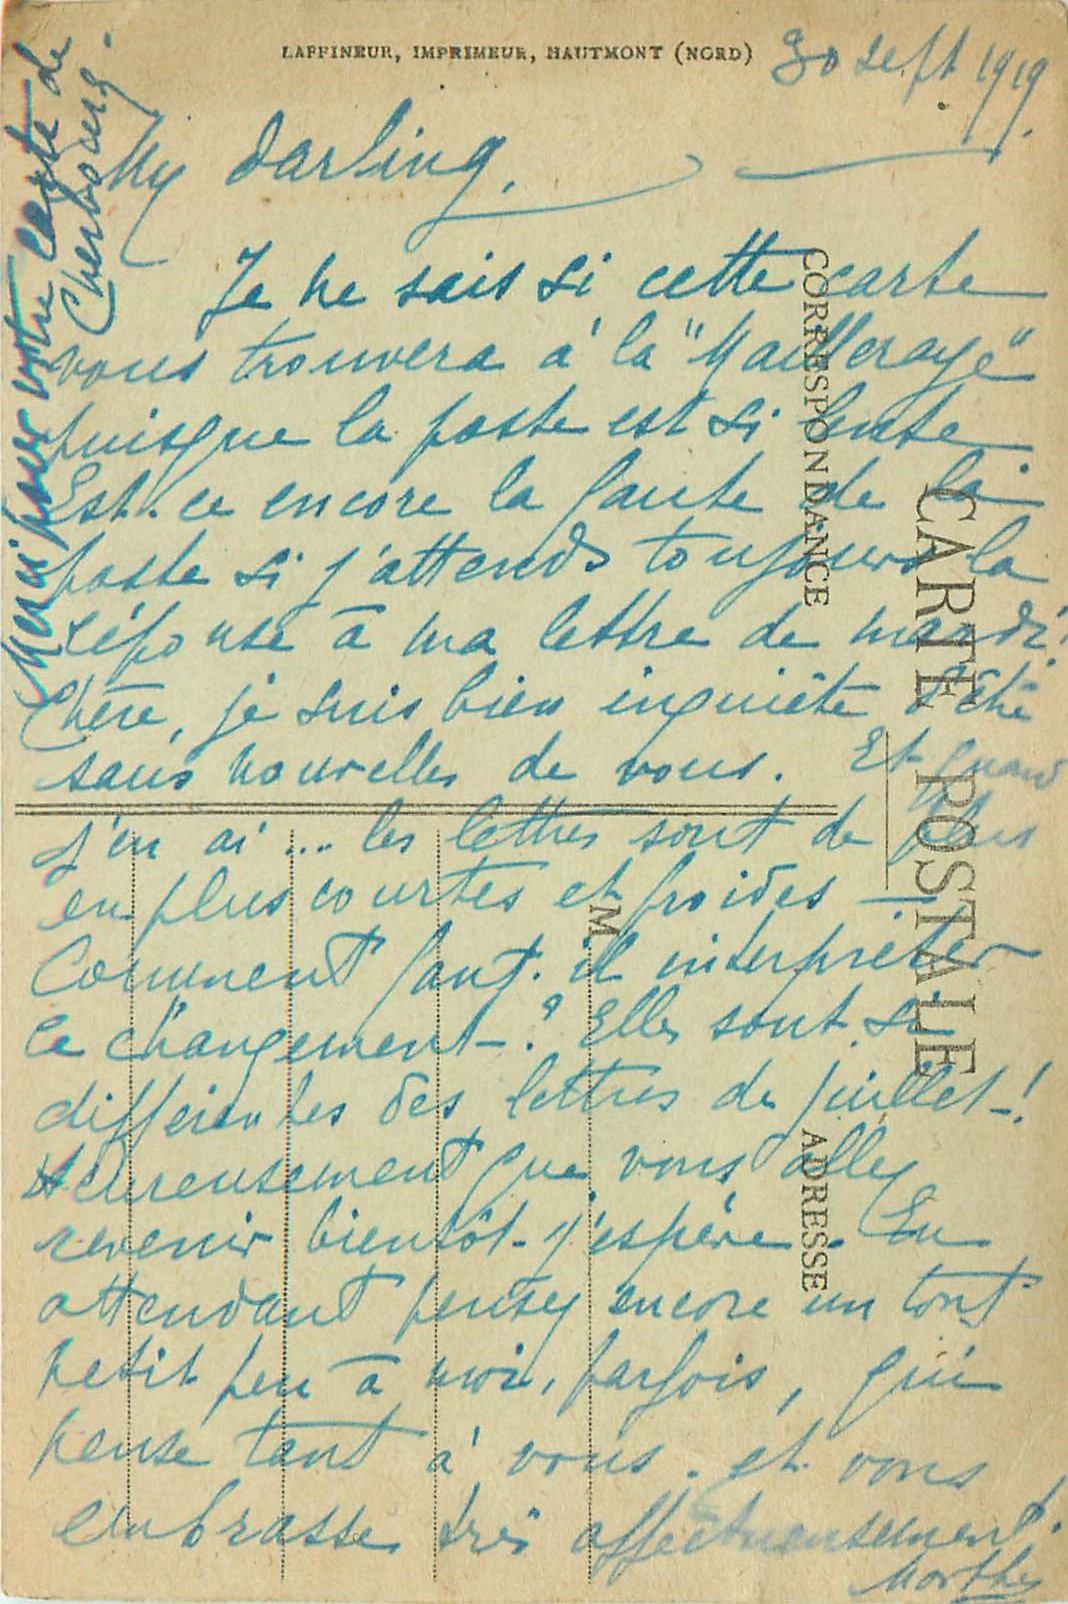 LAFFINEUR, IMPRIMEUR, HAUTMONT (NORD)
30 sept 1919.
My darling,
Je ne sais si cette carte
vous trouvera à la "Mailleraye"
puisque la poste est si lente
Est-ce encore la faute de la
poste si j'attends toujours la
réponse à ma lettre de mardi?
Chère, je suis bien inquiète d'être
sans nouvelles de vous. Et quand
j'en ai ... les lettres sont de plus
en plus courtes et froides —
Comment faut-il interpréter
ce changement-? Elles sont si
différentes des lettres de juillet-!
Heureusement que vous allez
revenir bientôt- j'espère. En
attendant pensez encore un tout
petit peu à moi, parfois, qui
pense tant à vous. et vous
embrasse très affectueusement.
Marthe
Merci pour votre carte de
Cherbourg.
CORRESPONDANCE
CARTE POSTALE
ADRESSE
M